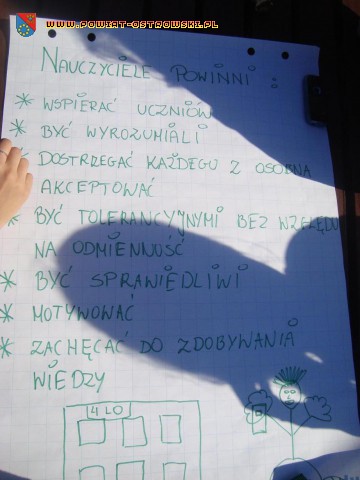 www.powiat-ostrowski.pl
NAUCZYCIELE POWINNI :
* WSPIERAĆ UCZNIÓW
* BYĆ WYROZUMIALI
DOSTRZEGAĆ KAŻDEGU Z OSOBNA
AKCEPTOWAĆ
* BYĆ TOLERANCYJNYMI BEZ WZGLĘDU
NA ODMIENNOŚĆ
* BYĆ SPRAWIEDLIWI
* MOTYWOWAĆ
* ZACHĘCAĆ DO ZDOBYWANIA
WIEDZY
4 LO